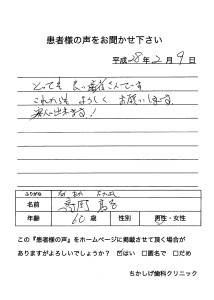 患者様の声をお聞かせ下さい
平成28年2月9日
とっても良い歯者さんでーす
これからもよろしくお願いします
ふりがな
名前
年齢 60歳 性別 男性・女性
この『患者様の声』をホームページに掲載させて頂く場合が
ありますがよろしいでしょうか？ ☑はい □匿名で □だめ
ちかしげ歯科クリニック